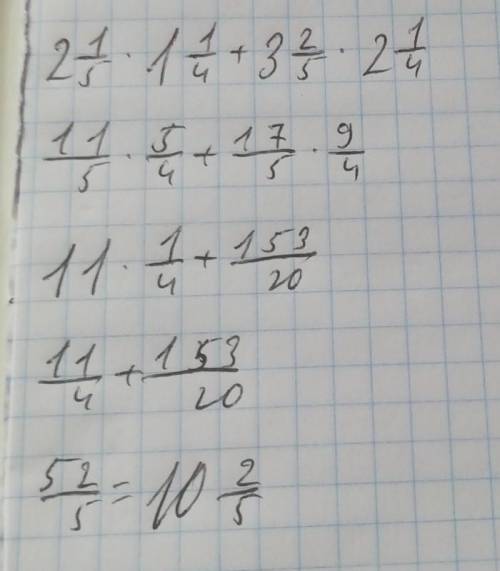 2 1/5 · 1 1/4 + 3 2/5 · 2 1/4
11/5 · 5/4 + 17/5 · 9/4
11 · 1/4 + 153/20
11/4 + 153/20
52/5 = 10 2/5